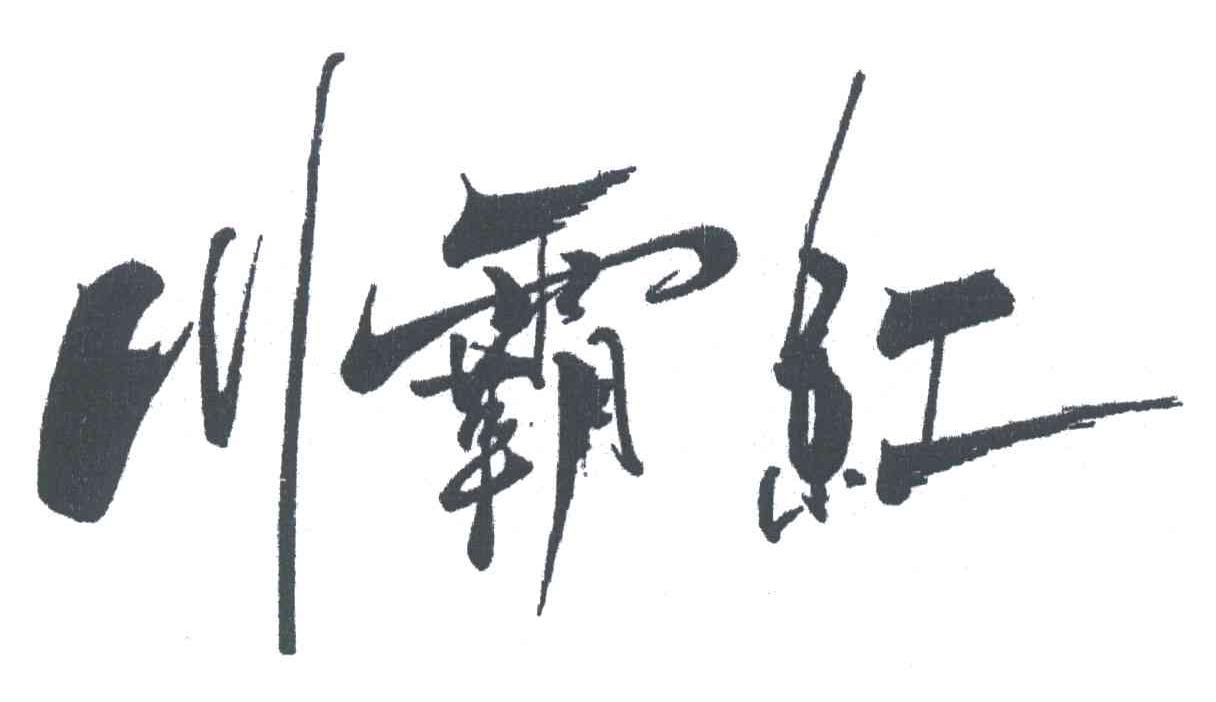 川霸紅